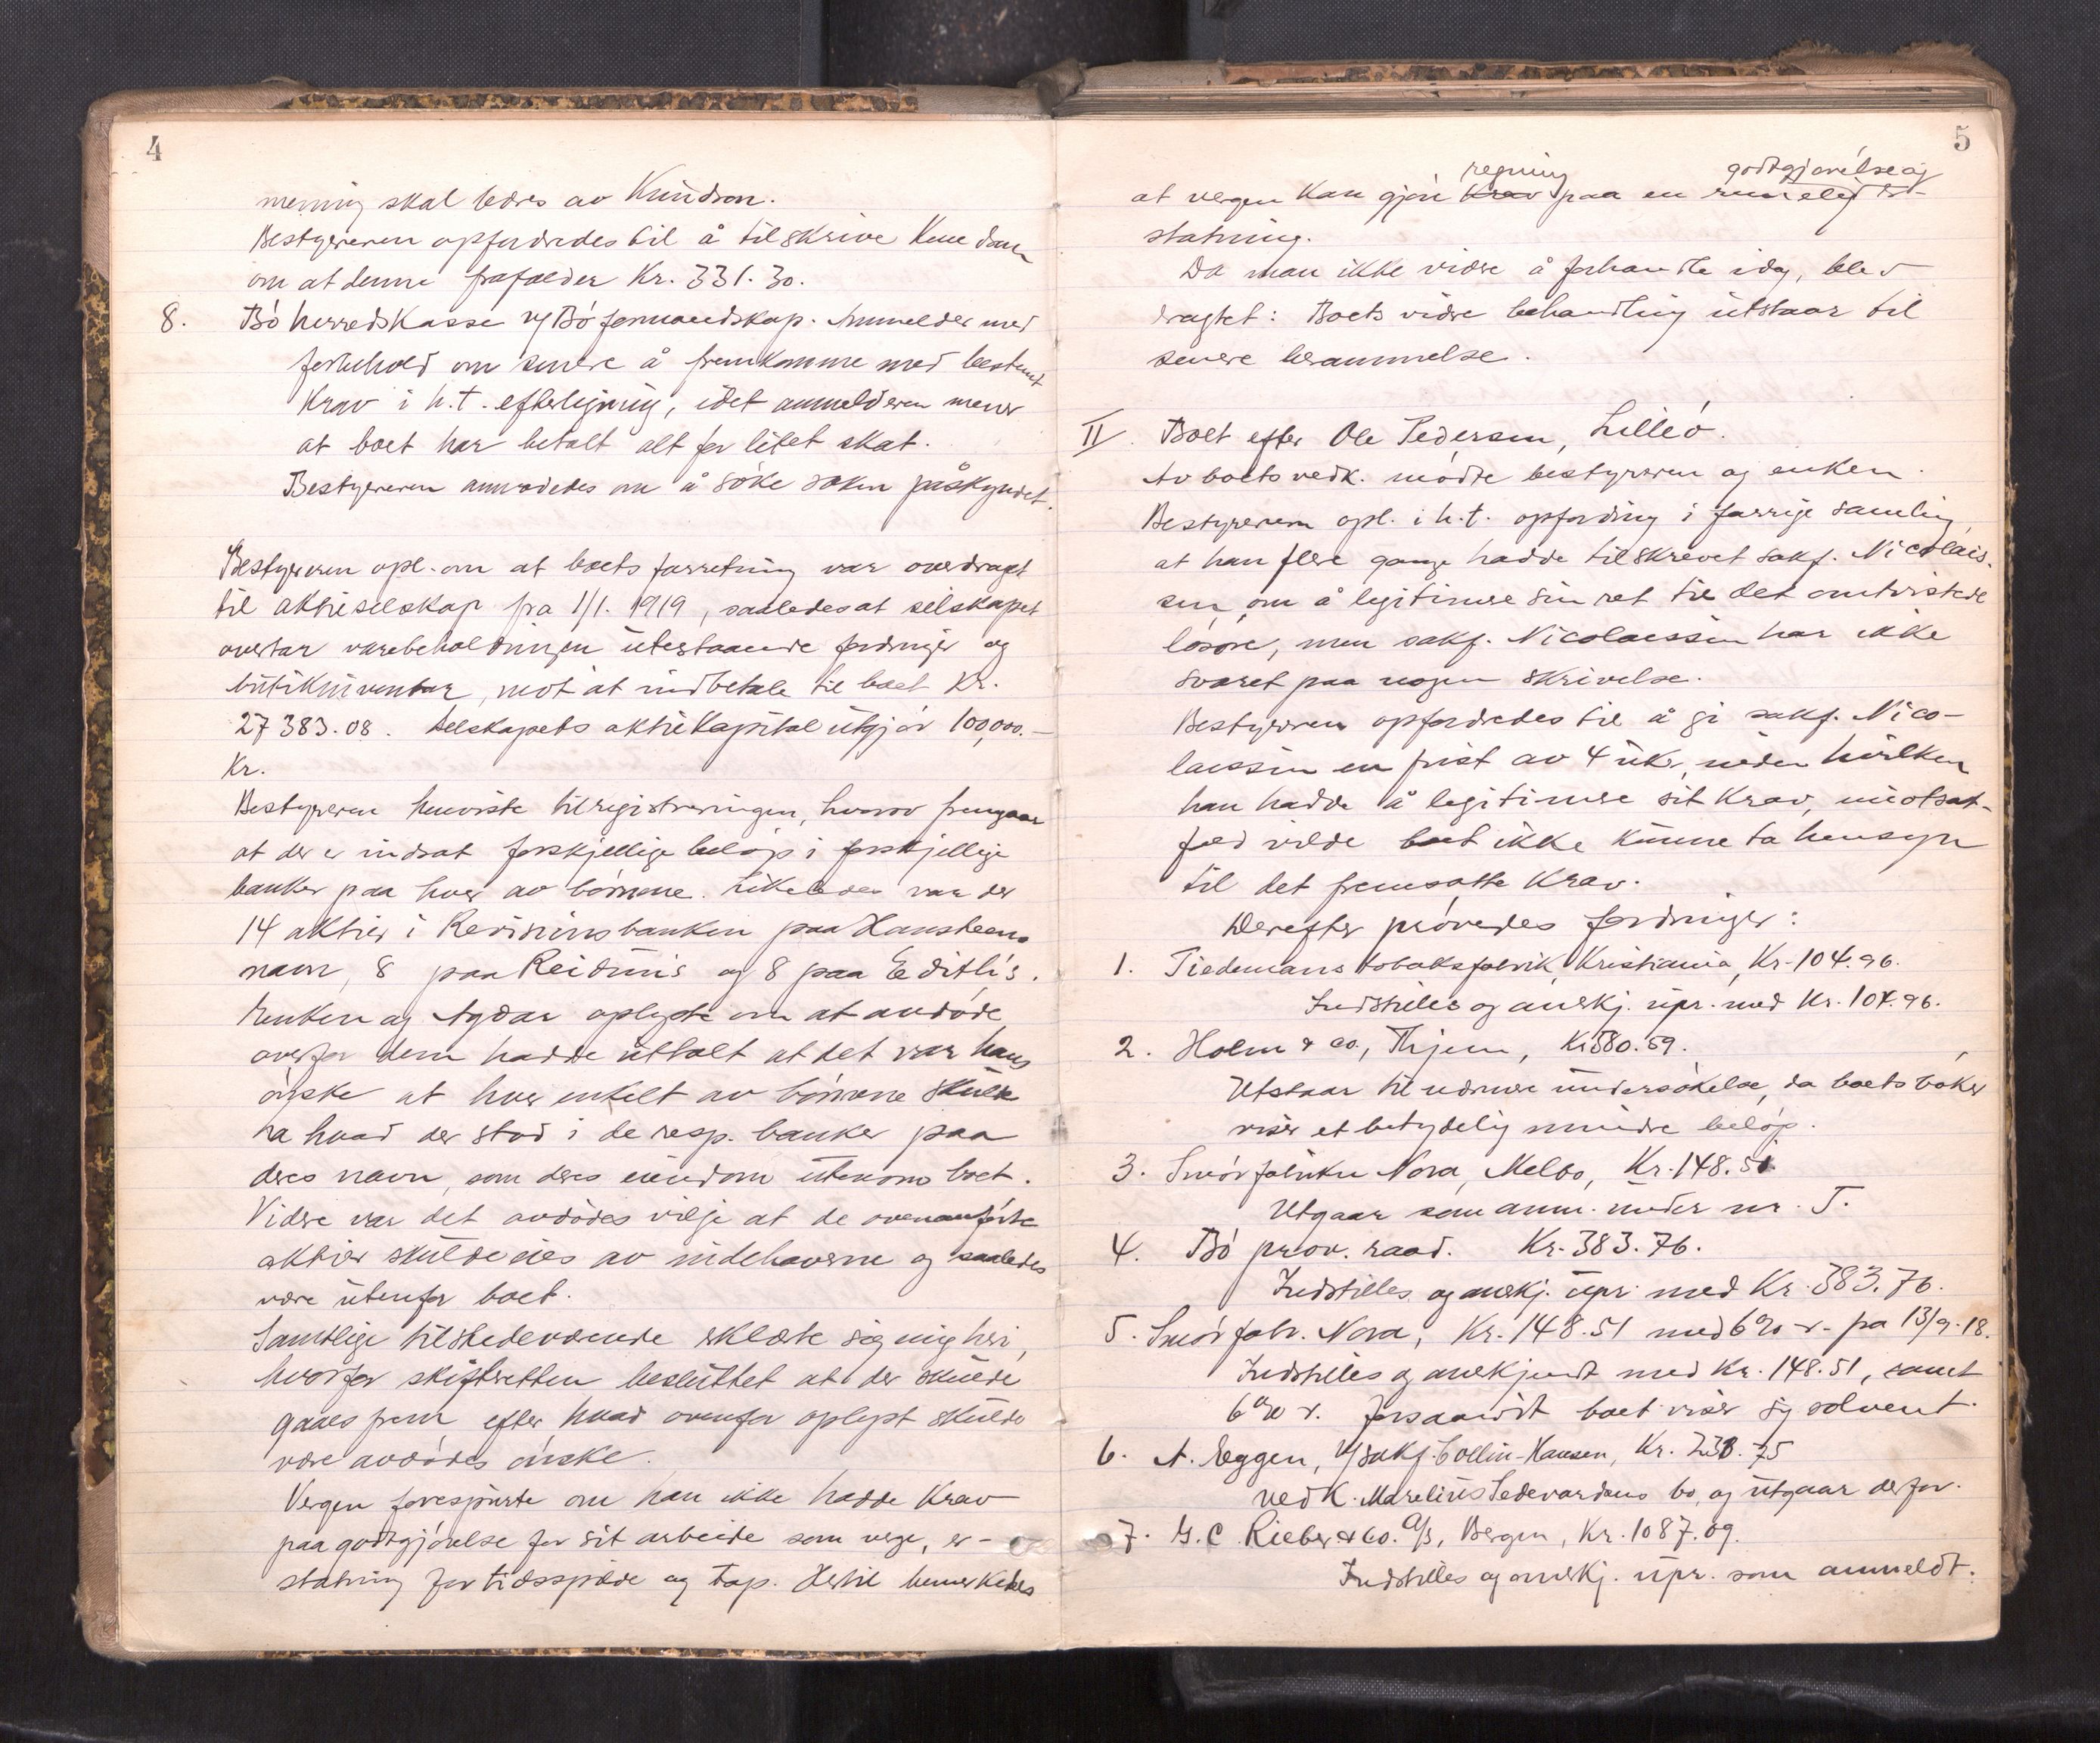 4
mening skal bæres av Knudson.
Bestyreren opfordredes til å tilskrive Knudson
om at denne frafalder Kr. 331.30.
8. Bö herredskasse v/ Bö formandskap. Anmelder med
forbehold om senere å fremkomme med bestemt
Krav i h.t. efterligning, idet anmelderen mener
at boet har betalt alt for litet skat.
Bestyreren anmodedes om å söke saken påskyndet.
Bestyreren opl. om at boets forretning var overdraget
til aktieselskap fra 1/1. 1919, saaledes at selskapet
overtar varebeholdningen utestaaende fordringer og
butikinventar, mot at indbetale til boet Kr.
27383.08. Selskapets aktiekapital utgjör 100,000.-
Kr.
Bestyreren henviste til registreringen, hvorav fremgaar
at der er indsat forskjellige belöp i forskjellige
banker paa hver av börnene. Likeledes var der
14 aktier i Revisionsbanken paa Hansteens
navn, 8 paa Reiduns og 8 paa Edith's.
Enken og Aydar oplyste om at avdöde
overfor dem hadde uttalt at det var hans
önske at hver enkelt av börnene skulde
ha hvad der stod i de resp. banker paa
deres navn, som deres eiendom utenom boet.
Videre var det avdödes vilje at de ovenanförte
aktier skulde eies av indehaverne og saaledes
være utenfor boet.
Samtlige tilstedeværende erklærte sig enig heri,
hvorfor skifteretten besluttet at der skulde
gaaes frem efter hvad ovenfor oplyst skulde
være avdödes önske.
Vergen forespurte om han ikke hadde Krav
paa godtgjörelse for sit arbeide som verge, er-
statning for tidsspilde og tap. Hertil bemerkedes
5
regning godtgjörelse og
at vergen kan gjöre Krav paa en rimelig er-
statning.
Da man ikke videre å forhandle idag, blev
dragtet: Boets videre behandling utstaar til
senere berammelse.
II. Boet efter Ole Pedersen, Lilleö.
Av boets vedk. mödte bestyreren og enken.
Bestyreren opl. i h.t. opfordring i forrige samling,
at han flere gange hadde tilskrevet sakf. Nicolais-
sen om å legitimere sin ret til det omtvistede
lösöre, men sakf. Nicolaissen har ikke
svaret paa nogen skrivelse.
Bestyreren opfordredes til å gi sakf. Nico-
laissen en frist av 4 uker, inden hvilken
han hadde å legitimere sit Krav, i motsat
fald vilde boet ikke kunne ta hensyn
til det fremsatte Krav.
Derefter prövedes fordringer:
1. Tiedemans tobaksfabrik, Kristiania, Kr. 104.96.
Indstilles og anerkj. upr. med Kr. 104.96.
2. Holm & Co., Trhjem, Kr. 580.59.
Utstaar til nærmere undersökelse, da boets böker
viser et betydelig mindre belöp.
3. Smörfabriken Nora, Melbo, Kr. 148.51.
Utgaar som anm. under nr. 5.
4. Bö prov. raad. Kr. 383.76.
Indstilles og anerkj. upr. med Kr. 383.76.
5. Smörfabr. Nora, Kr. 148.51 med 6% r. fra 13/9.18.
Indstilles og anerkjendt med Kr. 148.51, samt
6% r. forsaavidt boet viser sig solvent.
6. A. Eggen, v/ sakf. Collin-Hansen, Kr. 238.75
vedk. Marelius bo, og utgaar derfor.
7. G.C. Rieber & Co. A/S, Bergen, Kr. 1087.09.
Indstilles og anerkj. upr. som anmeldt.